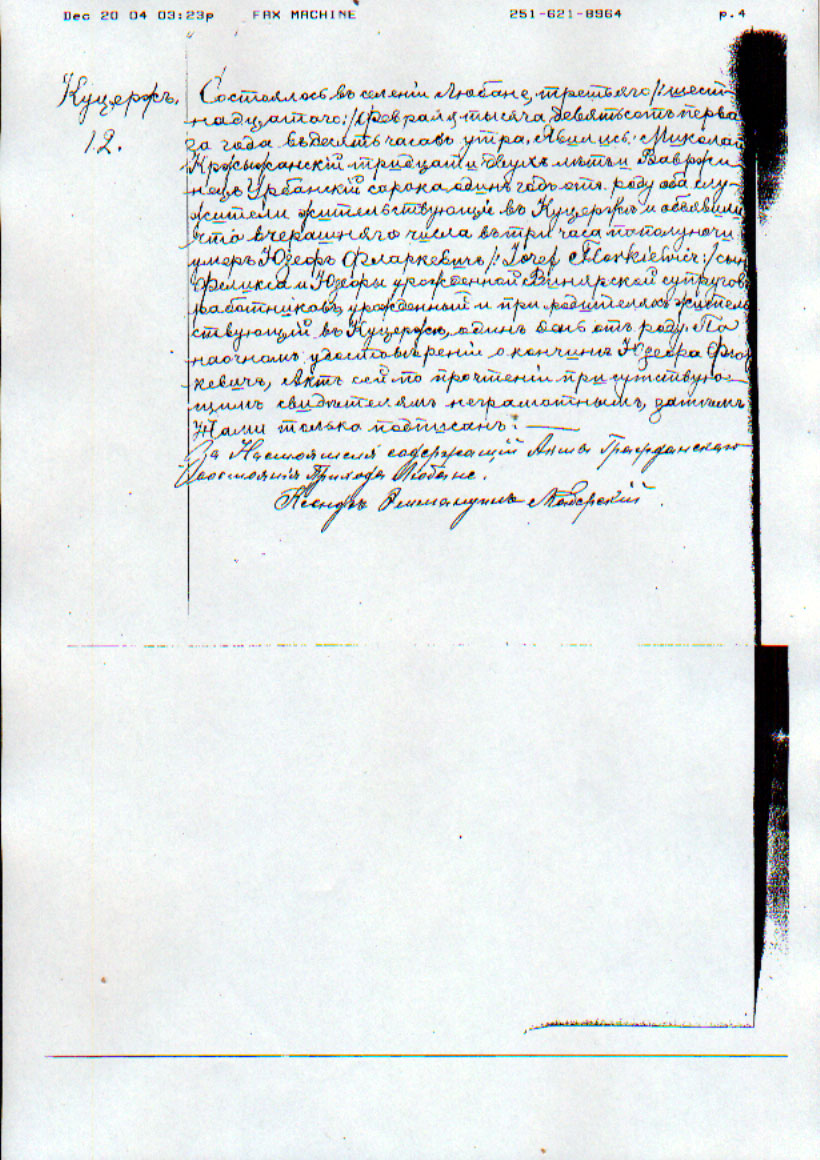 Dec 20 04 03:23p FAX MACHINE 251-621-8964 p.4
Куцержъ.
12.
Состоялось въ селеніи Любане, третьяго /: шест-
надцатого :/ Февраля, тысяча девятьсотъ перва
го года въ десять часовъ утра. Явились: Миколай
тридцати двухъ лѣтъ и Вавржи-
нецъ Урбанскій сорока одинъ годъ отъ роду оба слу-
жители жительствующіе въ Куцержѣ и объявили
что вчерашняго числа въ три часа пополуночи
умеръ Юзефъ Фларкевичъ /: Jozef Florkiewicz :/ сынъ
Феликса и Юзефы урожденной Винярской супруговъ
работниковъ, урожденный и при родителяхъ житель
ствующій въ Куцержѣ, одинъ день отъ роду. По
наочномъ удостовѣреніи о кончинѣ Юзефа Флор
кевичъ, Актъ сей по прочтеніи присутствую-
щимъ свидѣтелямъ неграмотнымъ, затѣмъ
Нами только подписанъ:
содержащій Акты Гражданскаго
Состоянія Прихода Любане.
Ксендзъ